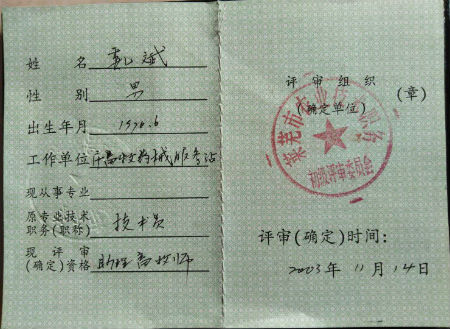 姓 名 斌
性 别 男
出生年月 1970.6
工作单位 服务站
现从事专业
原专业技术
职务(职称) 技术员
现 评 审
(确定)资格 助理畜牧师
评 审 组 织
(确定单位)
(章)
莱芜市 业
初级评审委员会
评审(确定)时间:
2003年 11月 14日